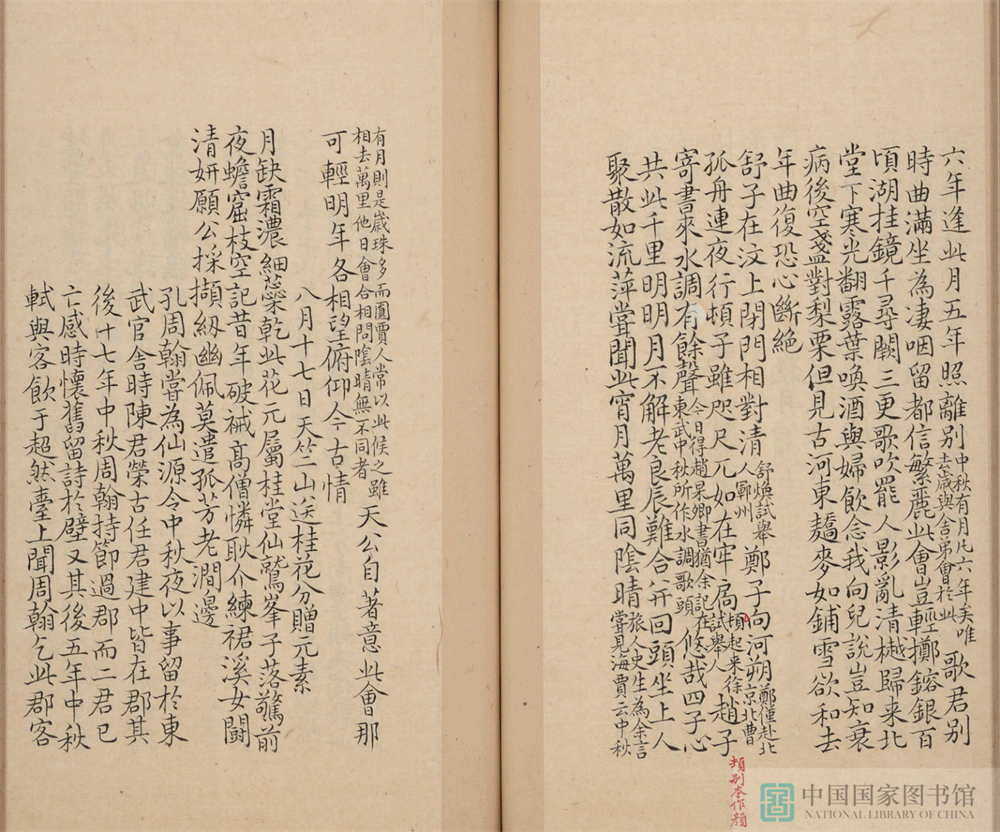 六年逢此月五年照離別中秋有月凡六年矣唯去歲與舍弟會於此歌君別
時曲滿坐為凄咽留都信繁麗此會豈輕擲鎔銀百
頃湖挂鏡千尋闕三更歌吹罷人影亂清樾歸來北
堂下寒光翻露葉喚酒與婦飲念我向兒說豈知衰
病後空盞對梨栗但見古河東蕎麥如鋪雪欲和去
年曲復恐心斷絶
舒子在汶上閉門相對清舒煥試舉人鄆州鄭子向河朔鄭僅赴北京北曹
孤舟連夜行頓子雖咫尺兀如在牢扃頓起来徐試舉人趙子
寄書來水調有餘聲今日得趙杲卿書猶余記在東武中秋所作水調歌頭悠哉四子心
共此千里明明月不解老良辰難合并回頭坐上人
聚散如流萍嘗聞此宵月萬里同陰晴旅人史生為余言嘗見海賈云中秋
頓别本作顏
有月則是歲珠多而圓賈人常以此候之雖相去萬里他日會合相問陰晴無不同者天公自著意此會那
可輕明年各相望俯仰今古情
八月十七日天竺山送桂花分贈元素
月缺霜濃細蘂乾此花元屬桂堂仙鷲峯子落驚前
夜蟾窟枝空記昔年破裓高僧憐耿介練裙溪女鬪
清妍願公採擷紉幽佩莫遣孤芳老澗邊
孔周翰嘗為仙源令中秋夜以事留於東
武官舍時陳君榮古任君建中皆在郡其
後十七年中秋周翰持節過郡而二君已
亡感時懷舊留詩於壁又其後五年中秋
軾與客飲于超然臺上聞周翰乞此郡客
中国国家图书馆
NATIONAL LIBRARY OF CHINA